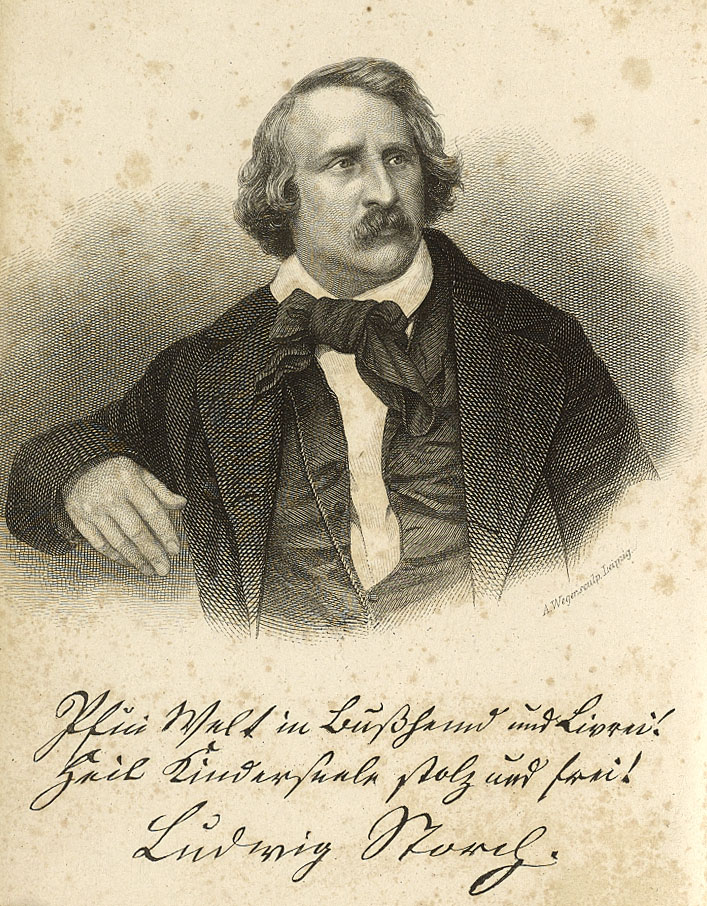 A. Weger sculp. Leipzig.
Pfui Welt in Bußhemd und Livrei!
Heil Kinderseele stolz und frei!
Ludwig Storch.